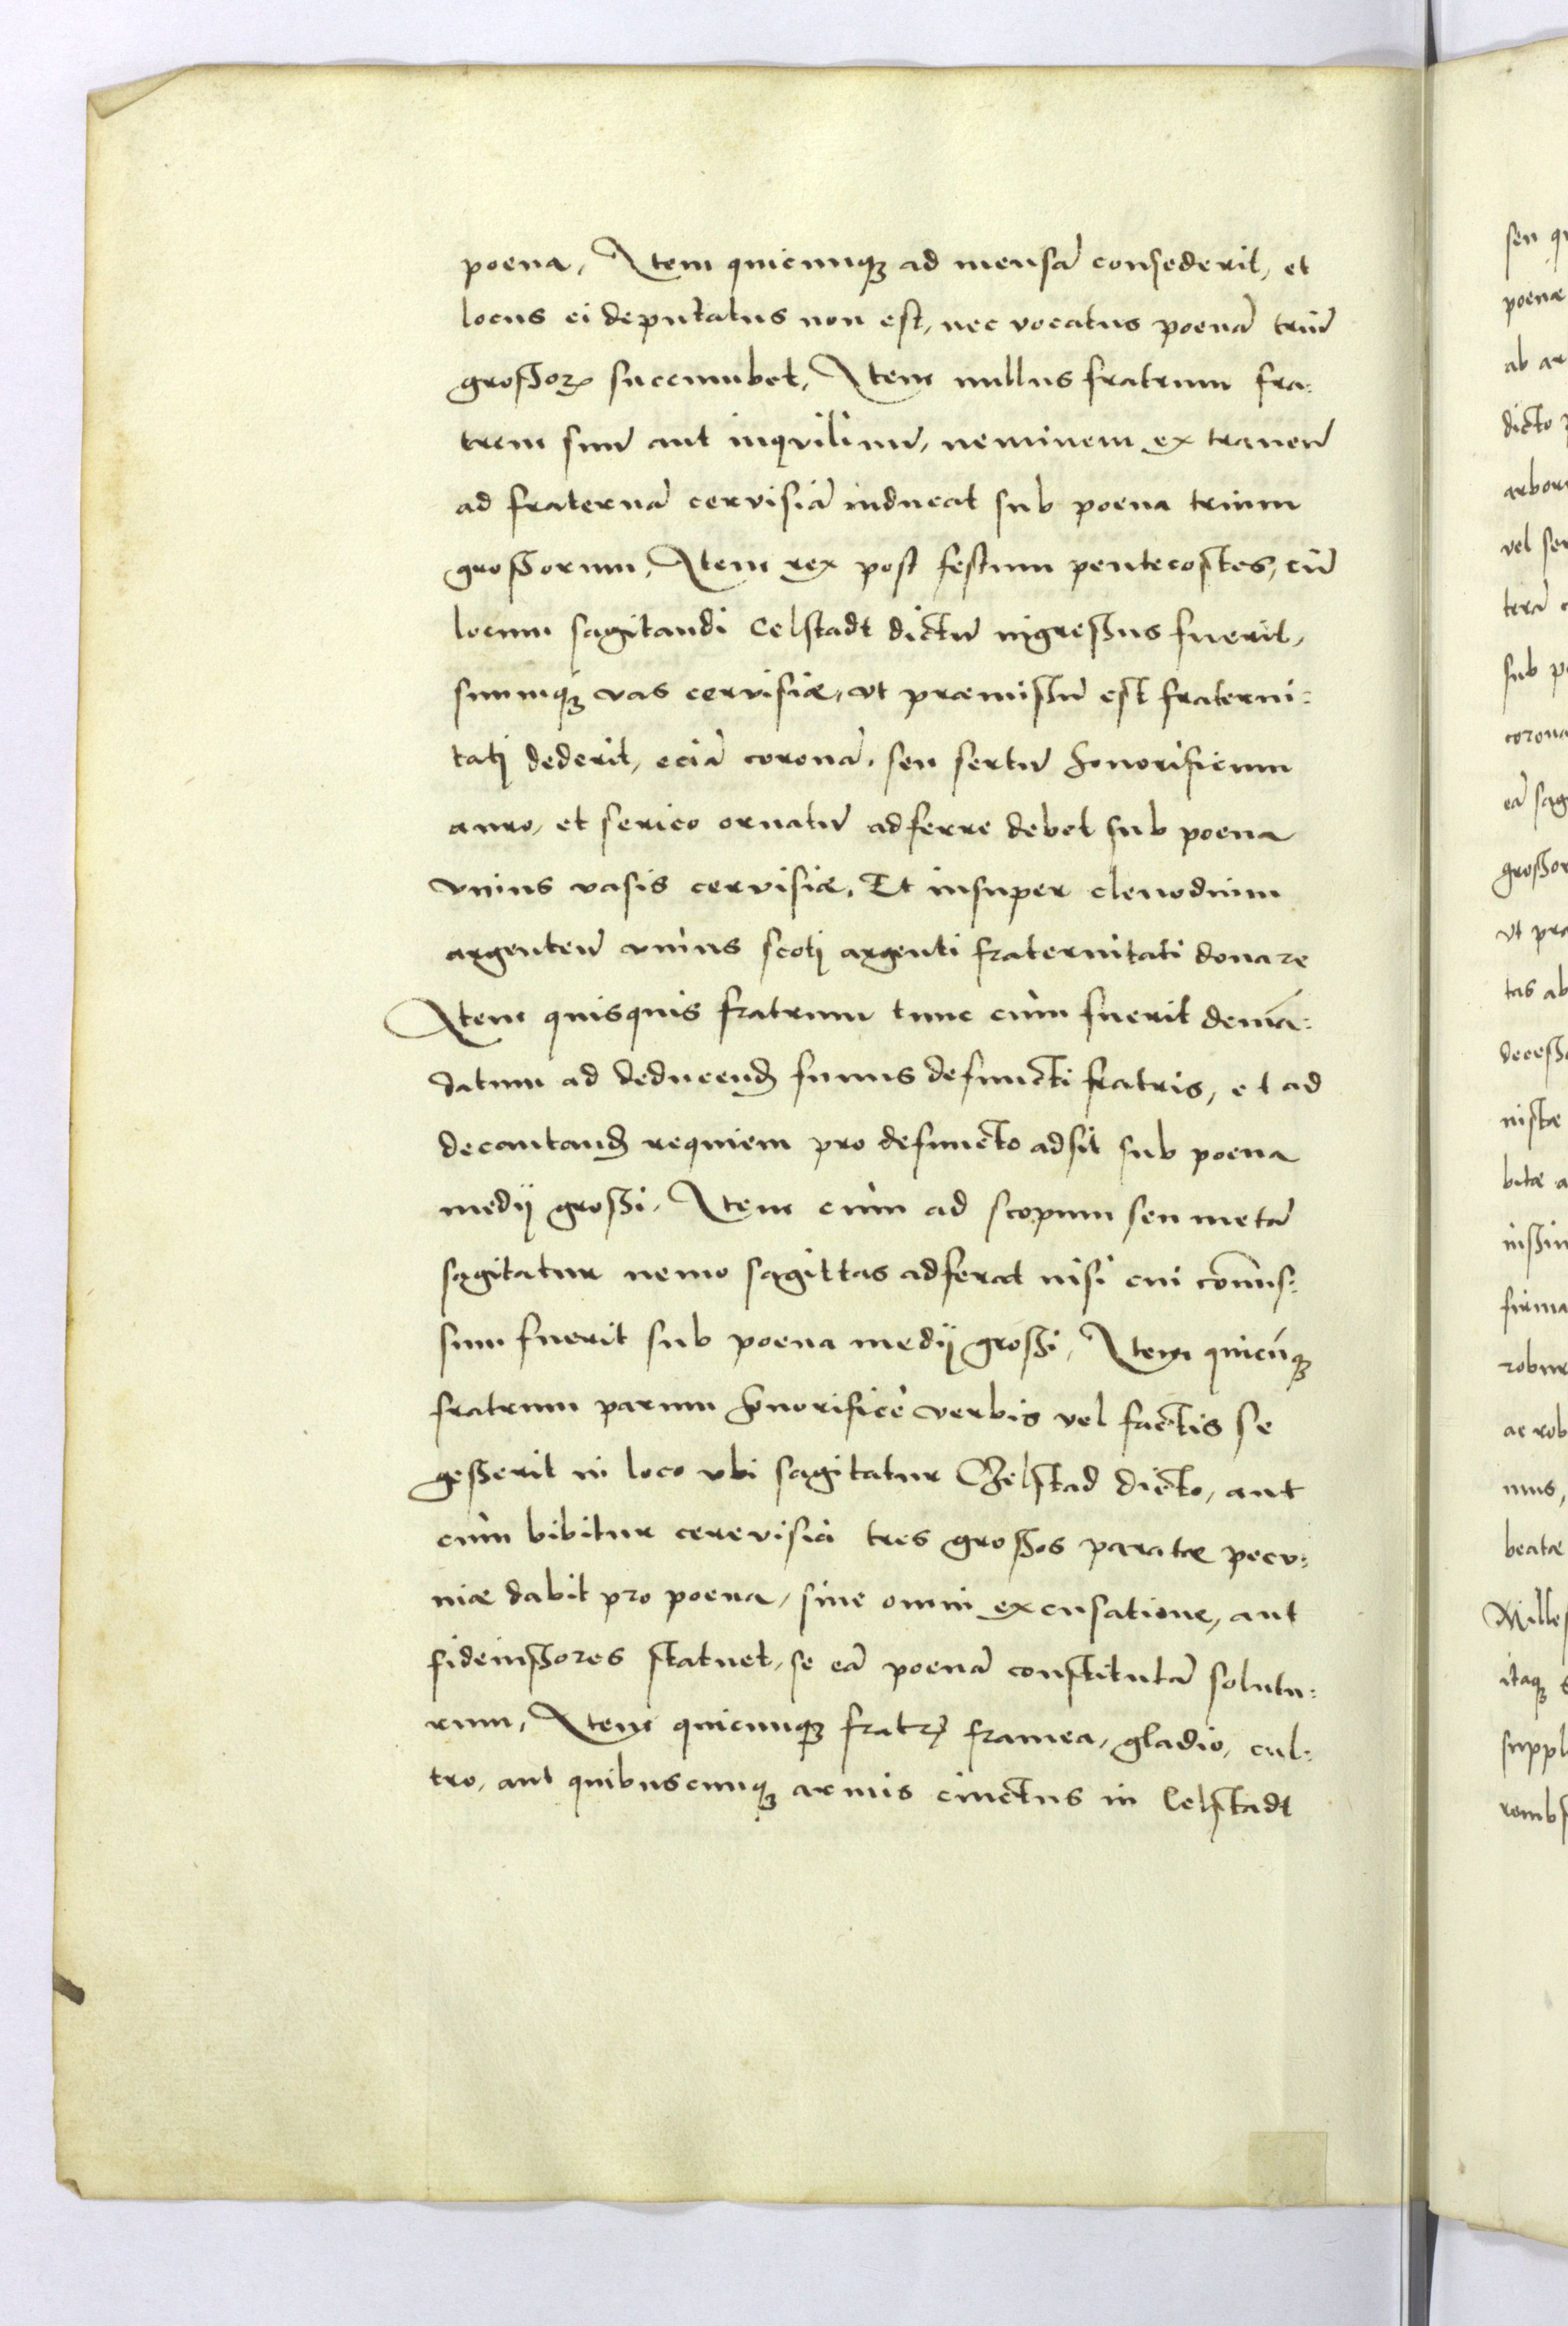 poena, Item quicunqꝫ ad mensā consederit, et
locus ei deputatus non est, nec vocatus poenā triū
großoꝝ succumbet, Item nullus fratrum fra:
trem suū aut inqvilinū, neminem extraneū
ad fraternā cervisiā inducat sub poena trium
großorum, Item rex post festum pentecostes, cū
locum sagitandi Celstadt dictū ingreßus fuerit,
suumqꝫ vas cervisiæ, vt præmißū est fraterni:
tatj dederit, eciā coronā, seu sertū honorificum
auro, et serico ornatū adferre debet sub poena
vnius vasis cervisiæ, Et insuper clenodium
argenteū vnius scotj argenti fraternitati donare
Item quisquis fratrum tunc cùm fuerit demā:
datum ad deducend̃ funus defuncti fratris, et ad
decantand̃ requiem pro defuncto adsit sub poena
medij großi, Item cùm ad scopum seu metā
sagitatur nemo sagittas adferat nisi cui com̄is:
sum fuerit sub poena medij großi, Item quicūqꝫ
fratrum parum honorificè verbis vel factis se
geßerit in loco vbi sagitatur Celstad dicto, aut
cùm bibitur cerevisia tres großos paratæ pecv:
niæ dabit pro poena, sine omni excusatione, aut
fideiußores statuet, se eā poenā constitutā solutu:
rum, Item quicunqꝫ fratrꝫ framea, gladio, cul:
tro, aut quibuscunqꝫ armis cinctus in Celstadt
sen q
poenæ
ab ar
dicto
arbor
vel se
terā
sub p
corona
eā sag
großor
vt pra
tas ab
deceß
nistæ
bitæ a
ißin
firma
robur
ac rob
mus,
beatæ
Milles
itaqꝫ
suppl